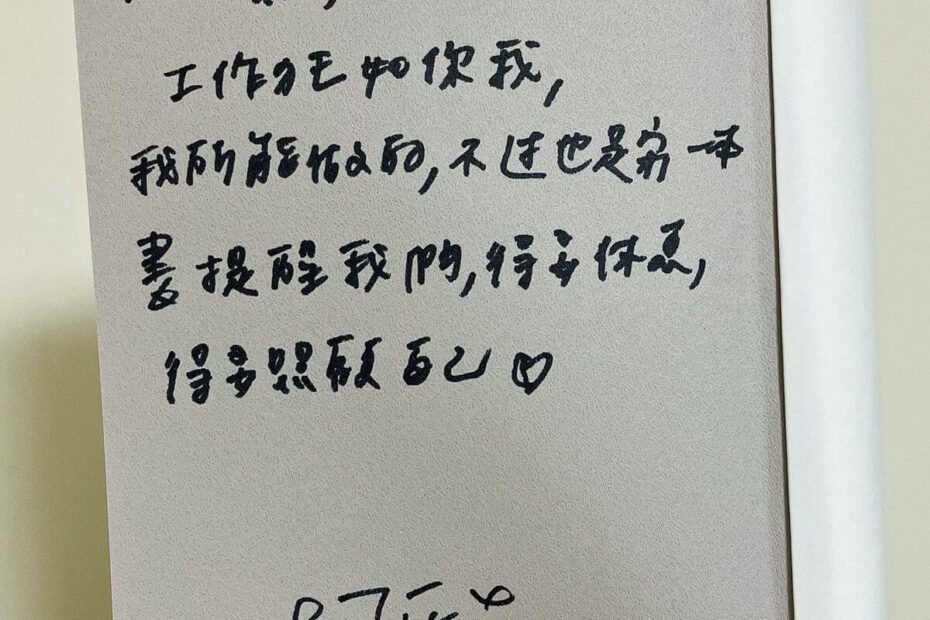 工作狂如你我,
我所能做的,不过也是寄一本
書提醒我們,得多休息,
得多照顾自己♡